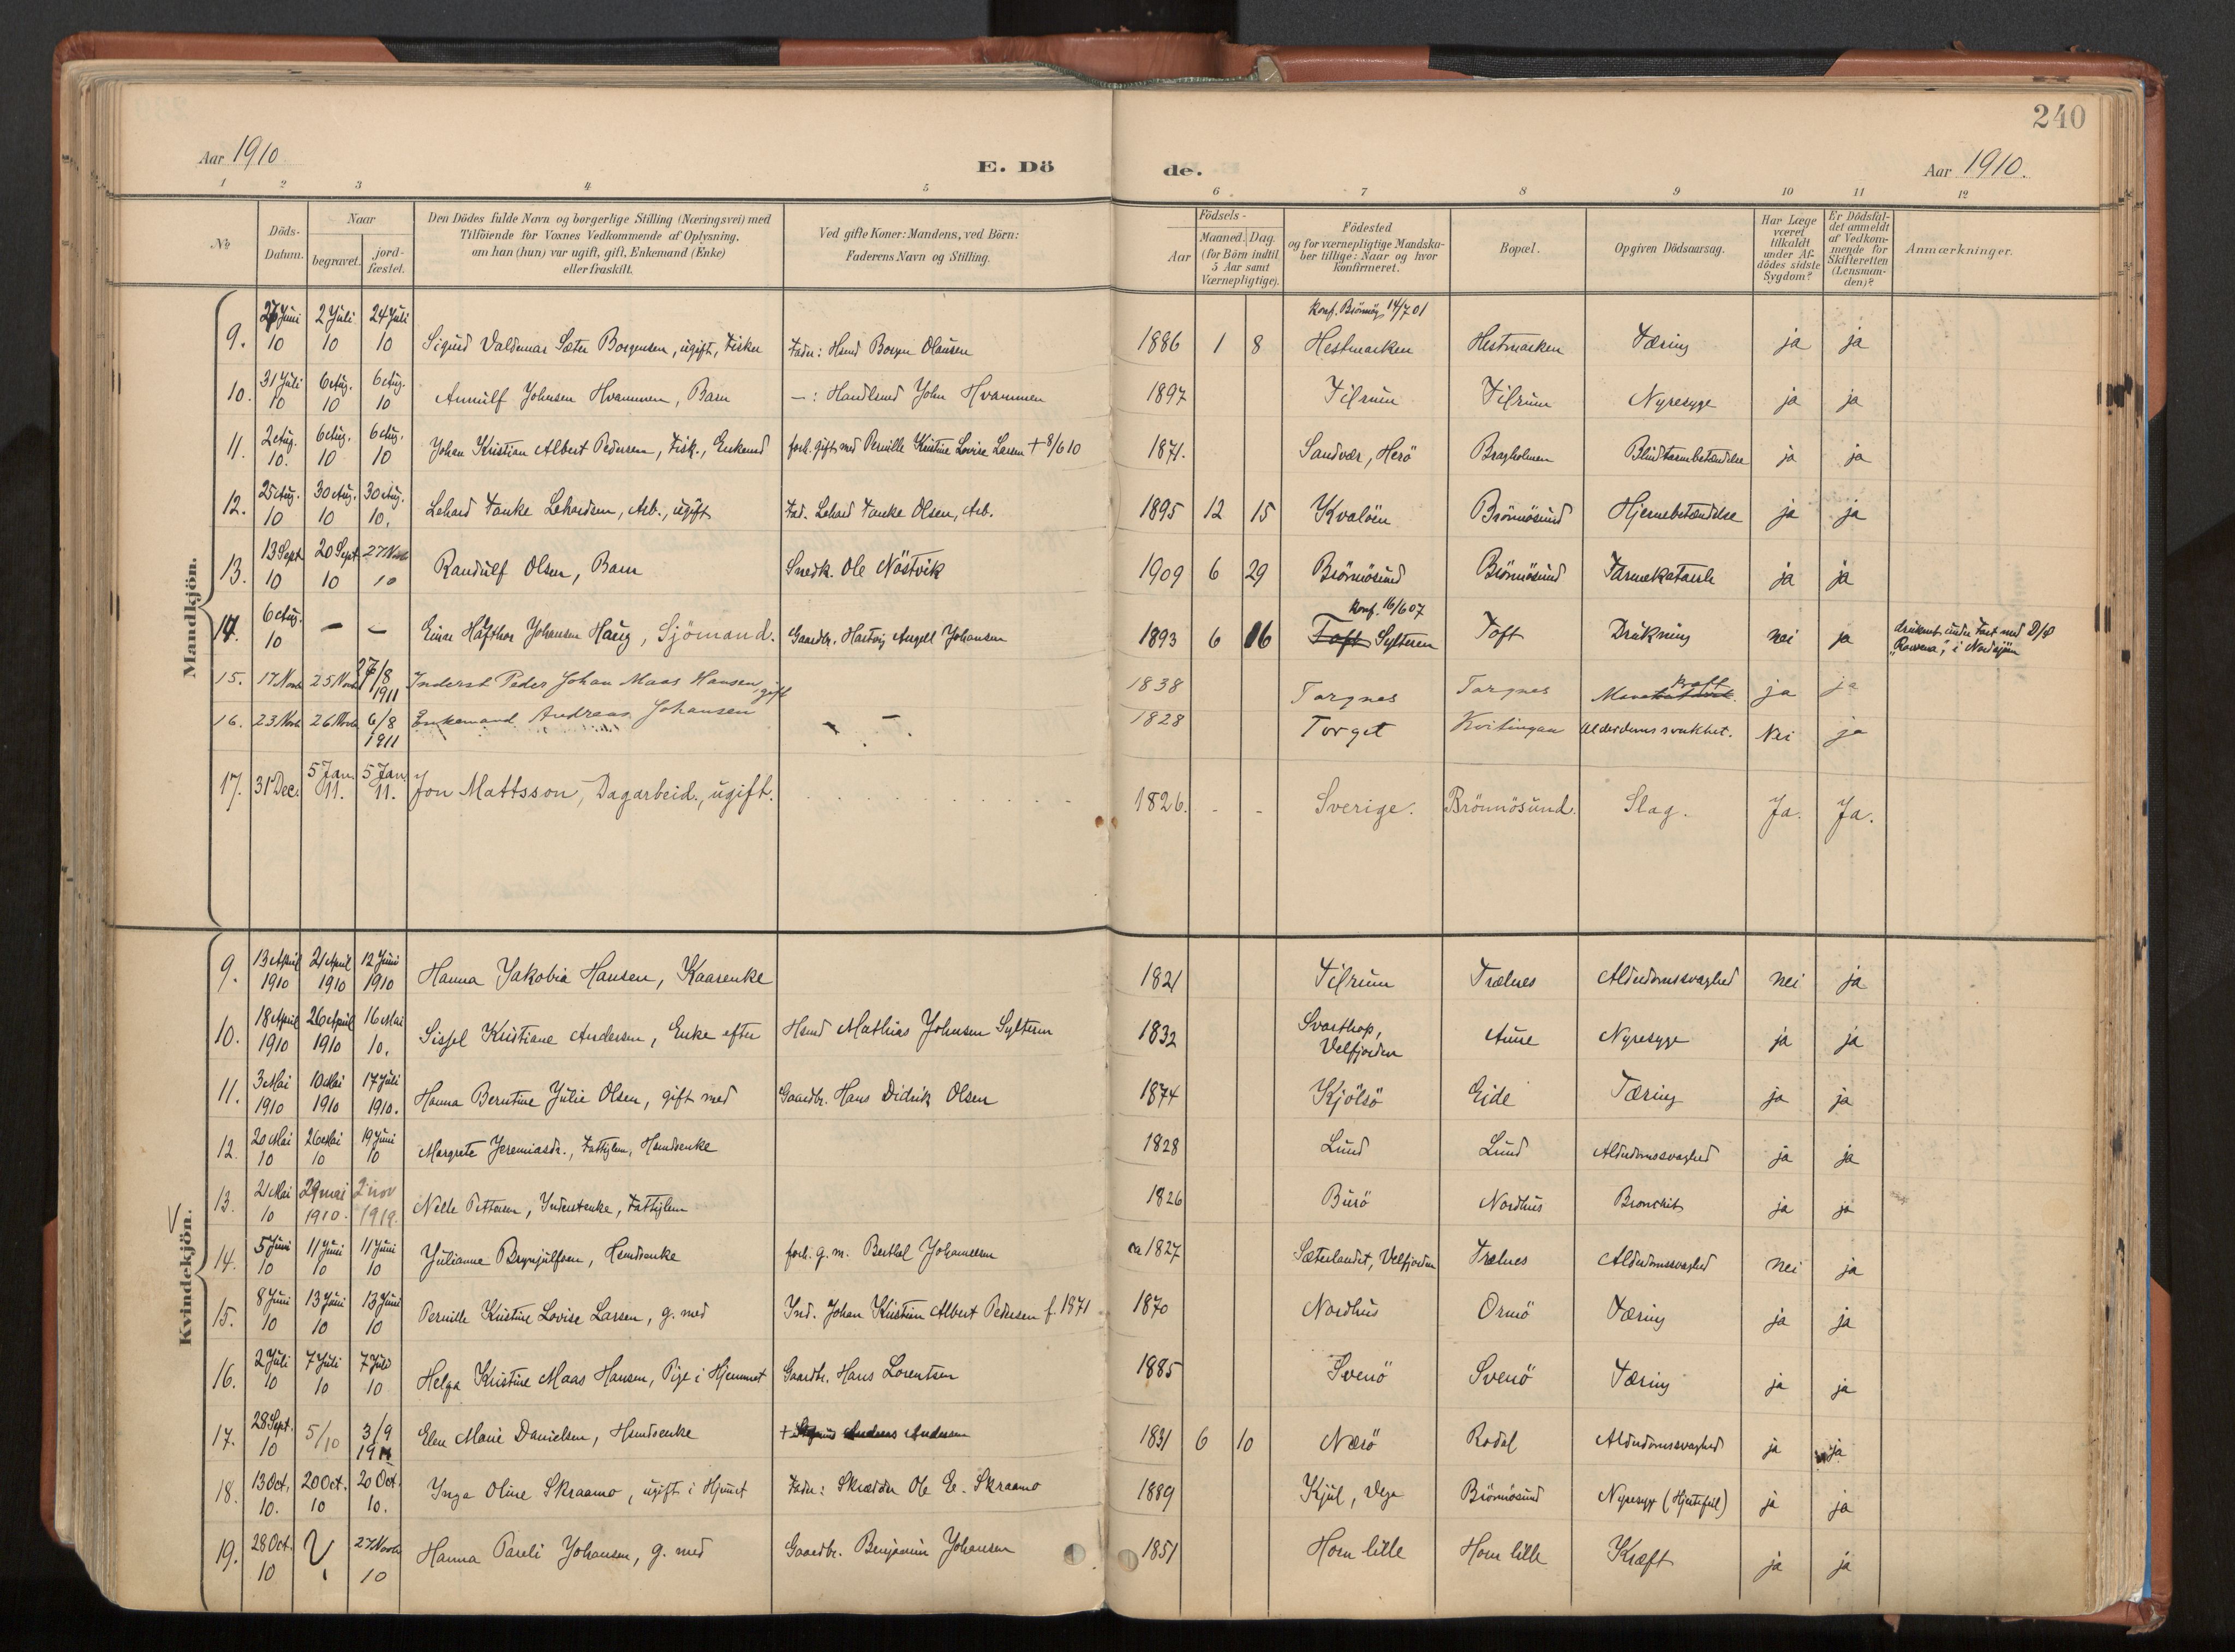 240
Aar 1910 E. Dö de. Aar 1910.
1 2 3 4 5 6 7 8 9 10 11 12
No
Döds-Datum.
Naar
begravet.
jord-fæstet.
Den Dödes fulde Navn og borgerlige Stilling (Næringsvei) med
Tilföiende for Voxnes Vedkommende af Oplysning,
om han (hun) var ugift, gift, Enkemand (Enke)
eller fraskilt.
Ved gifte Koner: Mandens, ved Börn:
Faderens Navn og Stilling.
Födsels-
Aar
Maaned. Dag.
(for Börn indtil
5 Aar samt
Værnepligtige).
Födested
og for værnepligtige Mandska-
ber tillige: Naar og hvor
konfirmeret.
Bopæl.
Opgiven Dödsaarsag.
Har Læge
været
tilkaldt
under Af-
dödes sidste
Sygdom?
Er Dödsfal-
det anmeldt
af Vedkom-
mende for
Skifteretten
(Lensman-
den)?
Anmærkninger.
Mandkjön.
Konf. Brönnöy 14/7 01
9. Juni 10 2 Juli 10 24 Juli 10 Sigurd Valdemar Sæter Borgensen, ugift, Fisker Fader: Hsmd Olausen 1886 1 8 Hestmarken Hestmarken Tæring ja ja
10. 31 Juli 10 6 Aug. 10 6 Aug. 10 Arnulf Johnsen Hvammen, Barn —: Handlsmd John Hvammen 1897 Tilrum Tilrum Nyresyge ja ja
11. 2 Aug. 10. 6 Aug. 10 6 Aug. 10 Johan Kristian Albert Pedersen, Fisk., Enkemd forh. gift med Pernille Kristine Lovise Larsen + 8/6 10 1871. Sandvær, Herö Bragholmen Blindtarmbetændelse ja ja
12. 25 Aug. 10 30 Aug. 10 30 Aug. 10. Lehard Tanke Lehardsen, Arb., ugift Fad. Lehard Tanke Olsen, Arb. 1895 12 15 Kvalöen Brönnösund Hjernebetændelse ja ja
13. 13 Sept 10 20 Sept 10 27 Novb 10 Randulf Olsen, Barn Snedk. Ole Nöstvik 1909 6 29 Brönnösund Brönnösund Tarmekatarrh ja ja
Konf. 16/6 07
14. 6 Aug. 10 – – Einar Hafthor Johansen Haug, Sjömand. Gaardbr. Hartvig Angell Johansen 1893 6 16 Toft Sylteren Toft Drukning nei ja druknet under Fart med D/S "Rowena", i Nordsjöen
15. 17 Novb 25 Novb 27/8 1911 Inderst Peder Johan Maas Hansen, gift 1838 Torgnes Torgnes Mave kræft ja ja
16. 23 Novb 26 Novb 6/8 1911 Enkemand Andreas Johansen – 1828 Torget Kvitingan Alderdoms svakhet. Nei ja
17. 31 Dec. 5 Jan. 11. 5 Jan. 11. Jon Mattsson, Dagarbeid., ugift. 1826. - - Sverige. Brönnösund. Slag. Ja. Ja.
Kvindekjön.
9. 13 April 1910 21 April 1910 12 Juni 1910 Hanna Jakobia Hansen, Kaarenke 1821 Tilrum Trælnes Alderdomssvaghed nei ja
10. 18 April 1910 26 April 1910 16 Mai 10. Sissel Kristiane Andersen, Enke efter Hsmd Mathias Johnsen Sylteren 1832 Svarthop, Velfjorden Aune Nyresyge ja ja
11. 3 Mai 1910 10 Mai 1910 17 Juli 1910. Hanna Berntine Julie Olsen, gift med Gaardbr. Hans Didrik Olsen 1874 Kjölsö Eide Tæring ja ja
12. 20 Mai 10 26 Mai 10 19 Juni 10 Margrete Jeremiasdr., Fattiglem, Hsmdsenke 1828 Lund Lund Alderdomssvaghed ja ja
13. 21 Mai 10 29 mai 1910. 2 nov Nelle Pettersen, Inderstenke, Fattiglem 1826 Burö Nordhus Bronchit ja ja
14. 5 Juni 10 11 Juni 10 11 Juni 10 Julianne Brynjulfsen, Hsmdsenke forh. g. m. Berthel Johannesen ca 1827 Sæterlandet, Velfjorden Trælnes Alderdomssvaghed nei ja
15. 8 Juni 10 13 Juni 10 13 Juni 10 Pernille Kristine Lovise Larsen, g. med Ind. Johan Kristian Albert Pedersen f. 1871 1870 Nordhus Ormö Tæring ja ja
16. 2 Juli 10 7 Juli 10 7 Juli 10 Helga Kristine Maas Hansen, Pige i Hjemmet Gaardbr. Hans Lorentsen 1885 Svenö Svenö Tæring ja ja
17. 28 Sept. 10 5/10 3/9 1911 Elen Marie Danielsen, Hsmdsenke + Andreas Andersen 1831 6 10 Nærö Rodal Alderdomssvaghed ja ja
18. 13 Oct. 10. 20 Oct. 10 20 Oct. 10. Inga Oline Skraamo, ugift i Hjemmet Fader: Skrædder Ole E. Skraamo 1889 Kjul, Vega Brönnösund Nyresyge (Hjertefeil) ja ja
19. 28 Oct. 10 27 Novb 10 Hanna Pareli Johansen, g. med Gaardbr. Benjamin Johansen 1851 Horn lille Horn lille Kræft ja ja